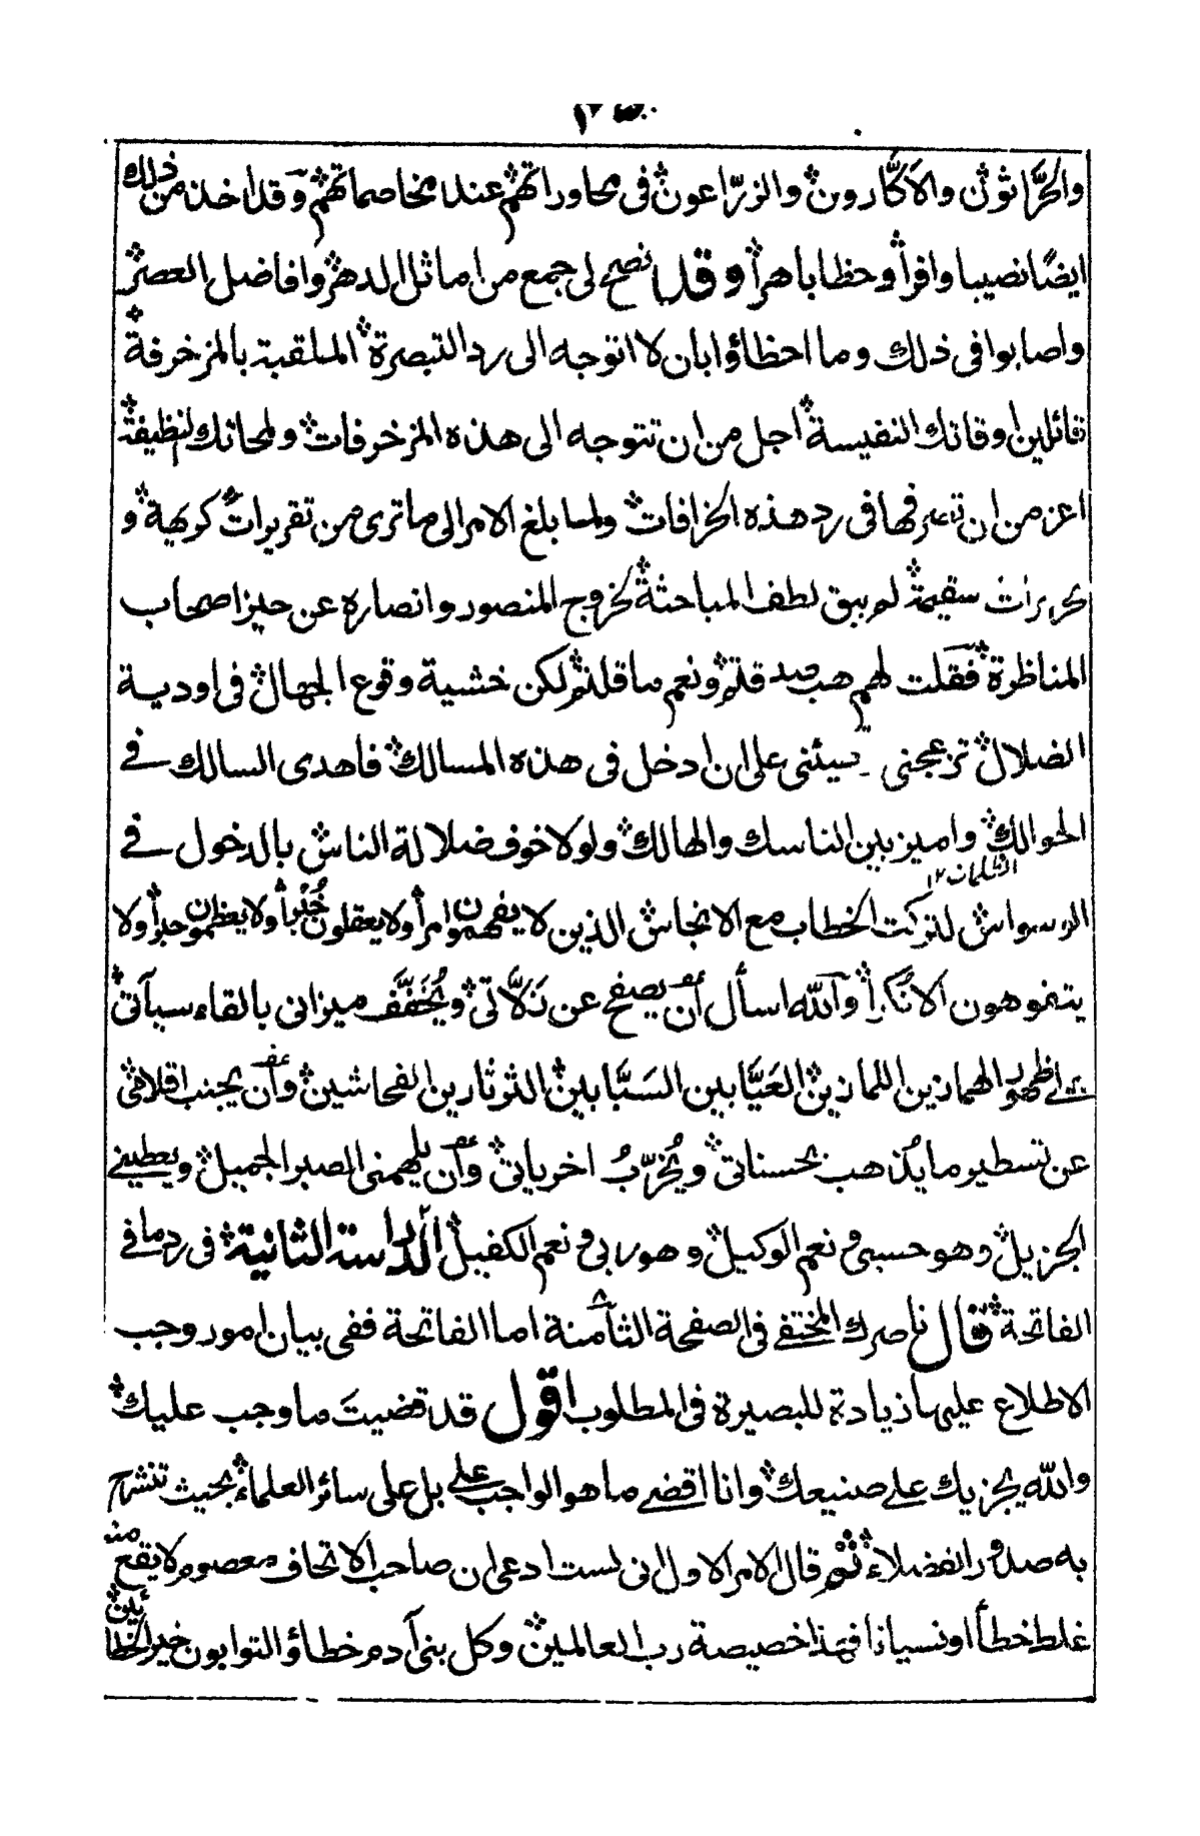 والحرَّاثون والأكَّارون والزرّاعون فى محاوراتهم عند مخاصماتهم وقد اخذ من ذلك
ايضًا نصيبا وافرا وحظا باهرا وقد انصح لى جمع من اماثل الدهر وافاضل العصر
واصابوا فى ذلك وما اخطاؤا بان لا اتوجه الى رد التبصرة الملقبة بالمزخرفة
قائلين اوقاتك النفيسة اجل من ان تتوجه الى هذه المزخرفات ولمحاتك لنظيفة
اعز من ان تصرفها فى رد هذه الخرافات ولما بلغ الامر الى ما ترى من تقريرات كريهة و
تحريرات سقيمة لم يبق لطف المباحثة لخروج المنصور وانصاره عن حيز اصحاب
المناظرة فقلت لهم هب صدقتم ونعم ما قلتم لكن خشية وقوع الجهال فى اودية
الضلال تزعجنى على ان ادخل فى هذه المسالك فاهدى السالك فے
الحوالك واميز بين الناسك والهالك ولولا خوف ضلالة الناس بالدخول فے
الظلمات ١٢
الوسواس لتركت الخطاب مع الانجاس الذين لا يفهمون امرا ولا يعقلون خُبْرا ولا يعظمون حبرا ولا
يتفوهون الا نُكرا وآلله اسأل أن يصفح عن زلَّاتى ويُخَفَّف ميزانى بالقاء سيآتى
على ظهور الهمازين اللمازين العَيَّابين السَبَّابين الثرثارين الفحاشين وأن يجنب اقلامى
عن تسطير ما يُذهب بحسناتى ويُخرّبُ اخرياتى وأن يلهمنى الصبر الجميل ويعطينے
الجزيل وهو حسبى ونعم الوكيل وهو ربى ونعم الكفيل الدراسة الثانية فى رد ما فے
الفاتحة قال ناصرك المختفے فى الصفحة الثامنة ٨ اما الفاتحة ففى بيان امور وجب
الاطلاع عليها زيادة للبصيرة فى المطلوب اقول قد قضيتَ ما وجب عليك
والله يجزيك علے صنيعك وانا اقضے ما هو الواجب علے بل على سائر العلماء بحيث تنشرح
به صدور الفضلاء ثم قال الامر الاول انى لست ادعى ان صاحب الاتحاف معصوم لا يقع منه
غلط خطأ او نسيانا فهذا خصيصة رب العالمين وكل بنى آدم خطاؤ التوابون خير الخطائين